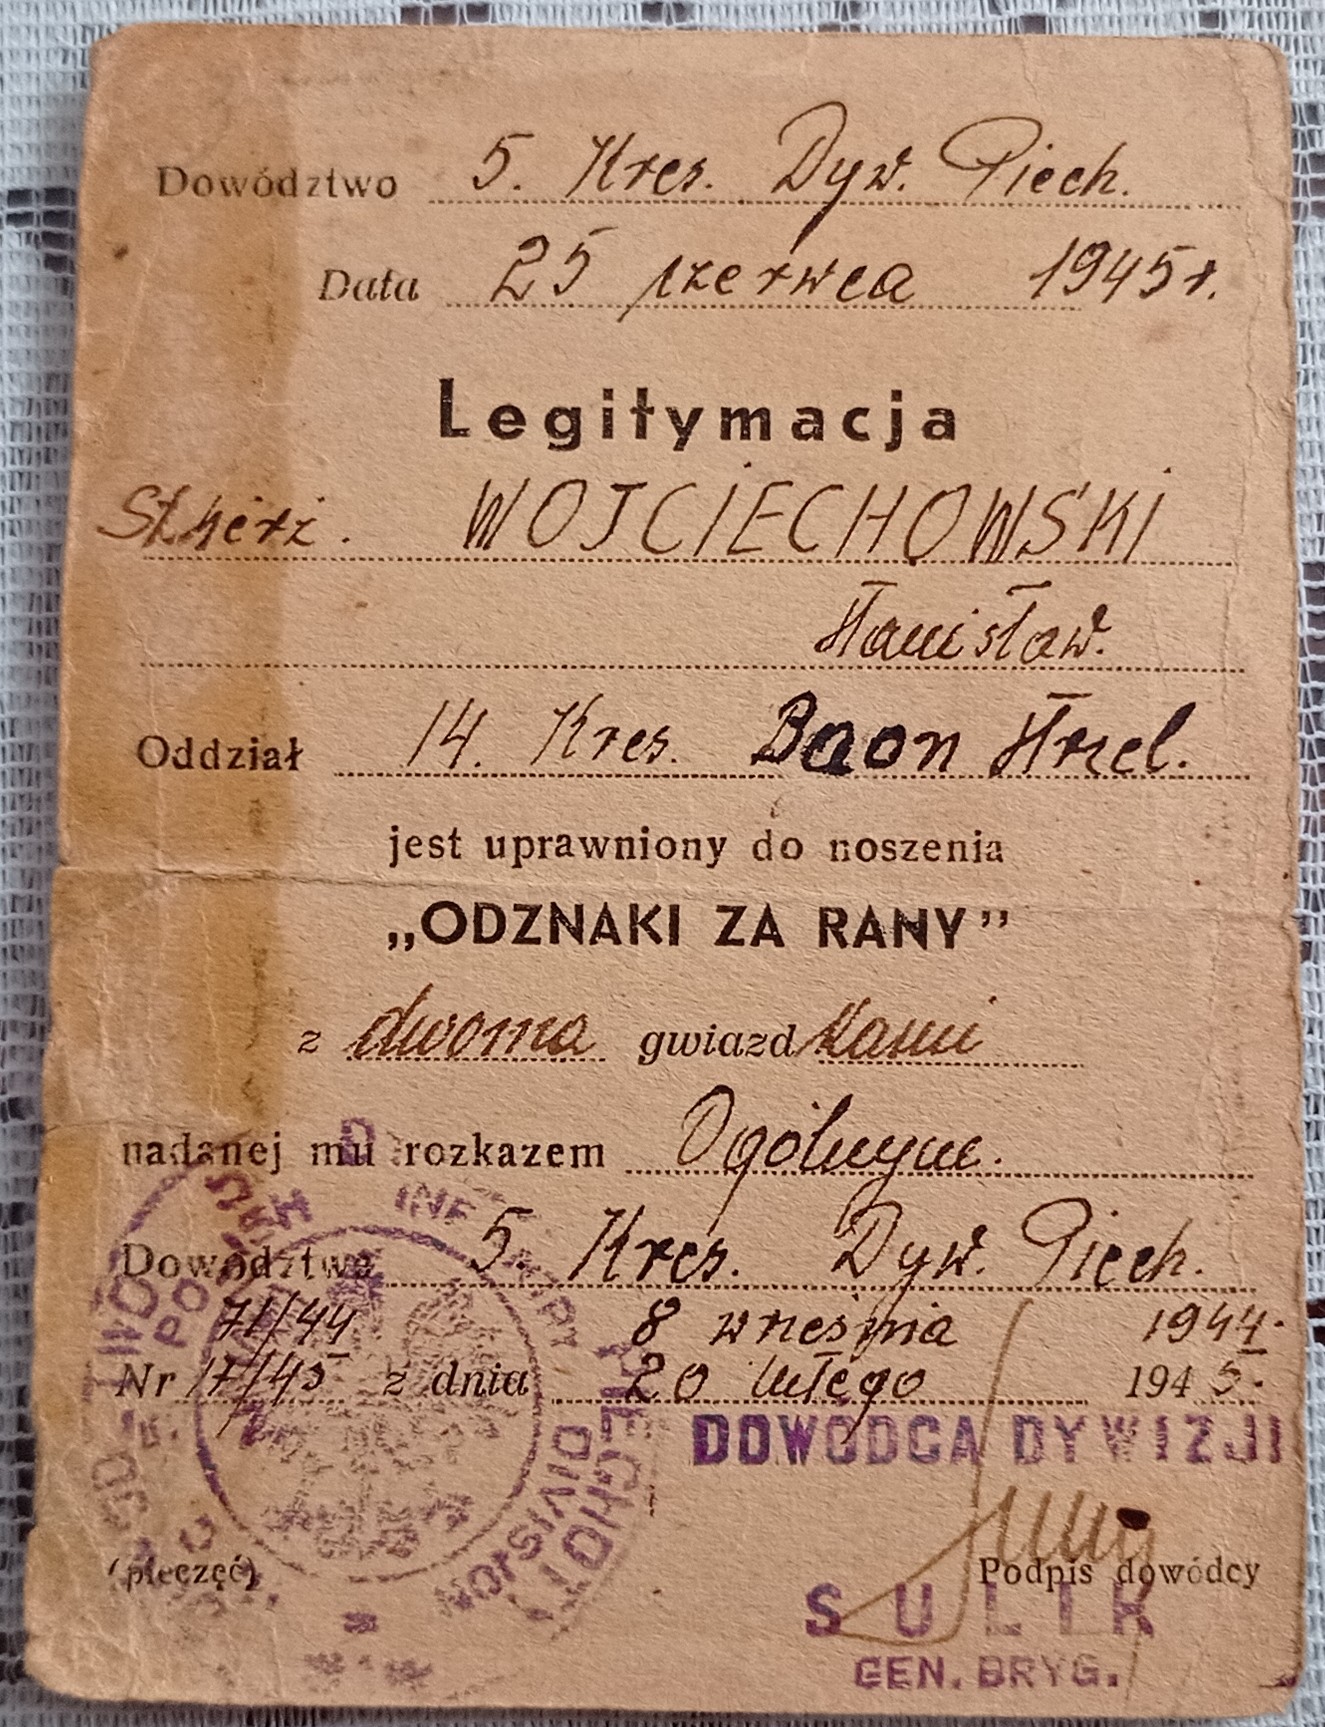 Dowództwo 5. Kres. Dyw. Piech.
Data 25 czerwca 1945r.
Legitymacja
St. WOJCIECHOWSKI
Stanisław.
Oddział 14. Kres. Baon Strzel.
jest uprawniony do noszenia
„ODZNAKI ZA RANY”
z dwoma gwiazdkami
nadanej mu rozkazem Ogólnym.
Dowództwo 5. Kres. Dyw. Piech.
71/44 8 września 1944.
Nr 17/45 z dnia 20 lutego 1945.
DOWÓDCA DYWIZJI
(pieczęć)
Podpis dowódcy
SULIK
GEN. BRYG.
INFANTRY DIVISION